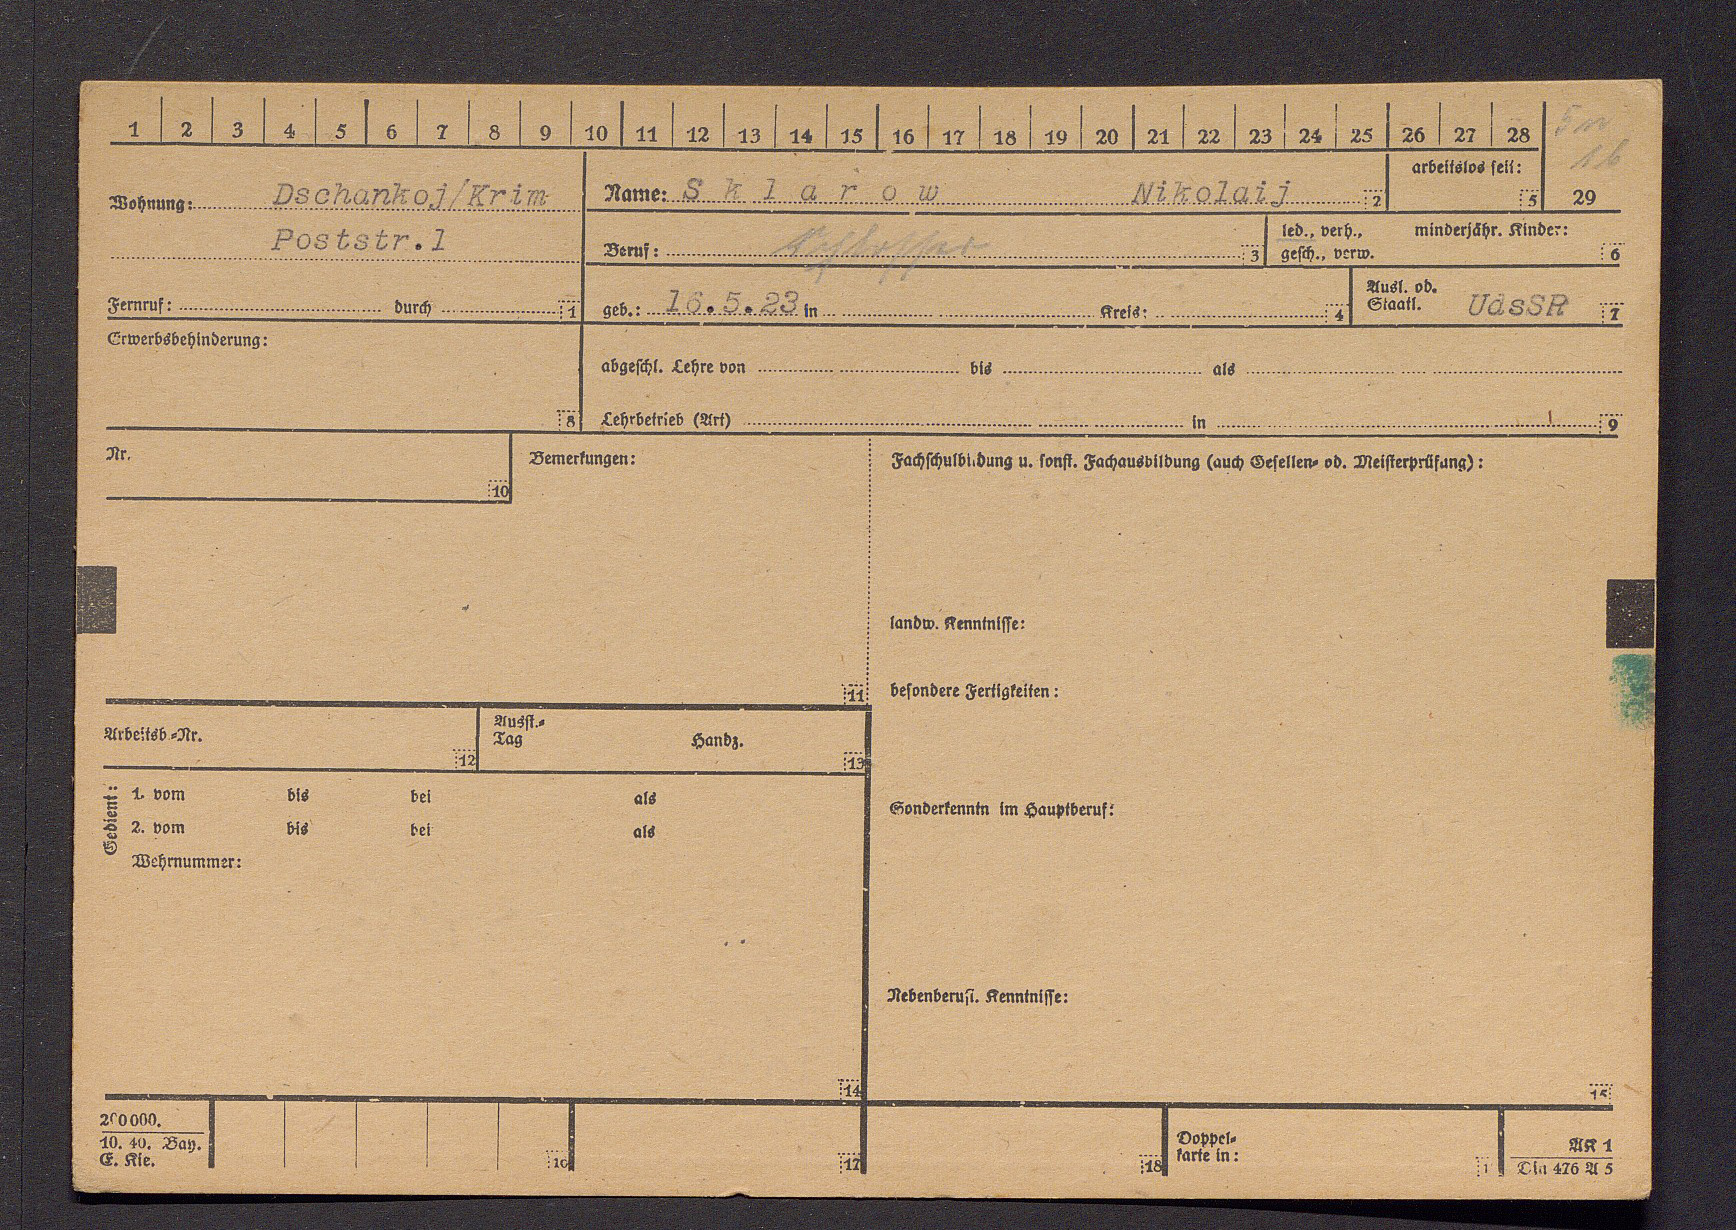 1 2 3 4 5 6 7 8 9 10 11 12 13 14 15 16 17 18 19 20 21 22 23 24 25 26 27 28
5
16
29
Wohnung: Dschankoj/Krim
Poststr.1
Fernruf: durch 1
Name: Sklarow Nikolaij 2
arbeitslos seit: 5
Beruf: Schlosser 3
led., verh.,
gesch., verw.
minderjähr. Kinder: 6
geb.: 16.5.23 in Kreis: 4
Ausl. od.
Staatl. UdsSR 7
Erwerbsbehinderung:
8
abgeschl. Lehre von bis als
Lehrbetrieb (Art) in 9
Nr.
10
Bemerkungen:
11
Fachschulbildung u. sonst. Fachausbildung (auch Gesellen- od. Meisterprüfung):
landw. Kenntnisse:
besondere Fertigkeiten:
Arbeitsb.-Nr.
12
Ausst.-
Tag Handz.
13
Gedient:
1. vom bis bei als
2. vom bis bei als
Wehrnummer:
14
Sonderkenntn im Hauptberuf:
Nebenberufl. Kenntnisse:
15
200000.
10. 40. Bay.
E. Kie.
16
17
18
Doppel-
karte in:
1
AK 1
Din 476 A 5